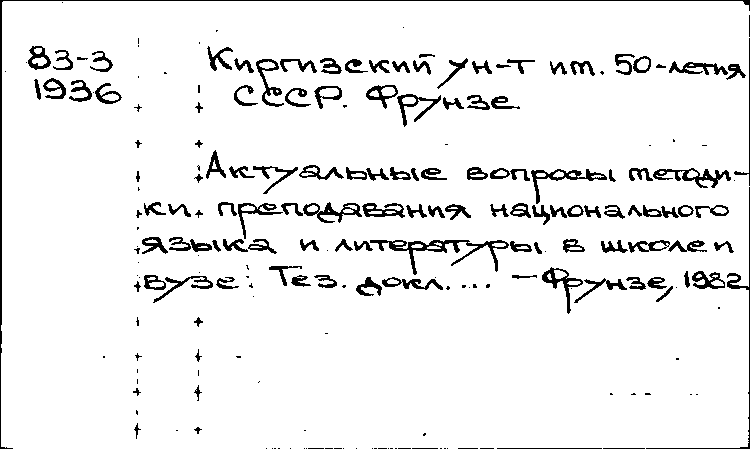 83-3
1936
Киргизский ун-т им. 50-летия
СССР. Фрунзе
Актуальные вопросы методи-
ки преподавания национального
языка и литературы в школе и
вузе: Тез. докл. ... - Фрунзе, 1982